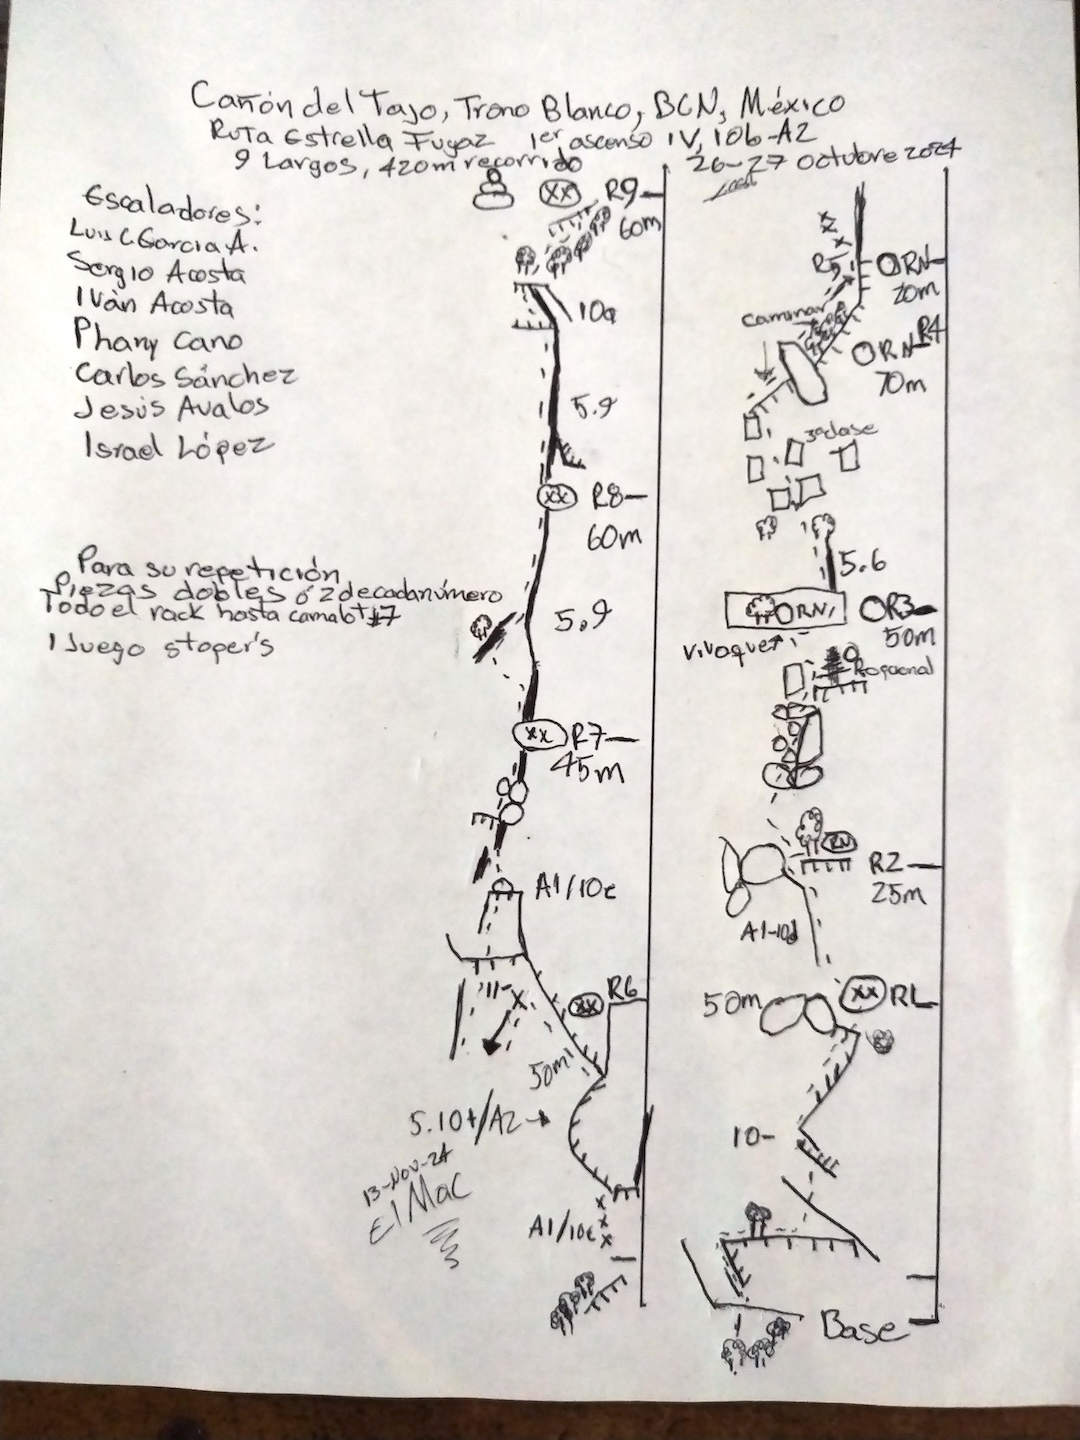 Cañón del Tajo, Trono Blanco, BCN, México
Ruta Estrella Fugaz 1er ascenso IV, 10b-A2
9 Largos, 420m recorrido 26-27 octubre 2024
Escaladores:
Luis C. Garcia A.
Sergio Acosta
Iván Acosta
Phany Cano
Carlos Sánchez
Jesús Avalos
Israel López
Para su repetición
Piezas dobles ó 2 de cada número
Todo el rack hasta camalot #7
1 Juego stoper's
XX R9
60m
10a
5.9
XX R8
60m
5.9
XX R7
45m
A1/10c
XX R6
50m
5.10+/A2
13-Nov-24
El Mac
A1/10c
R5 RN
20m
caminar
RN R4
70m
3ª clase
5.6
RN R3
50m
vivaque
Opcional
RN
R2
25m
A1-10d
50m XX R1
10-
Base